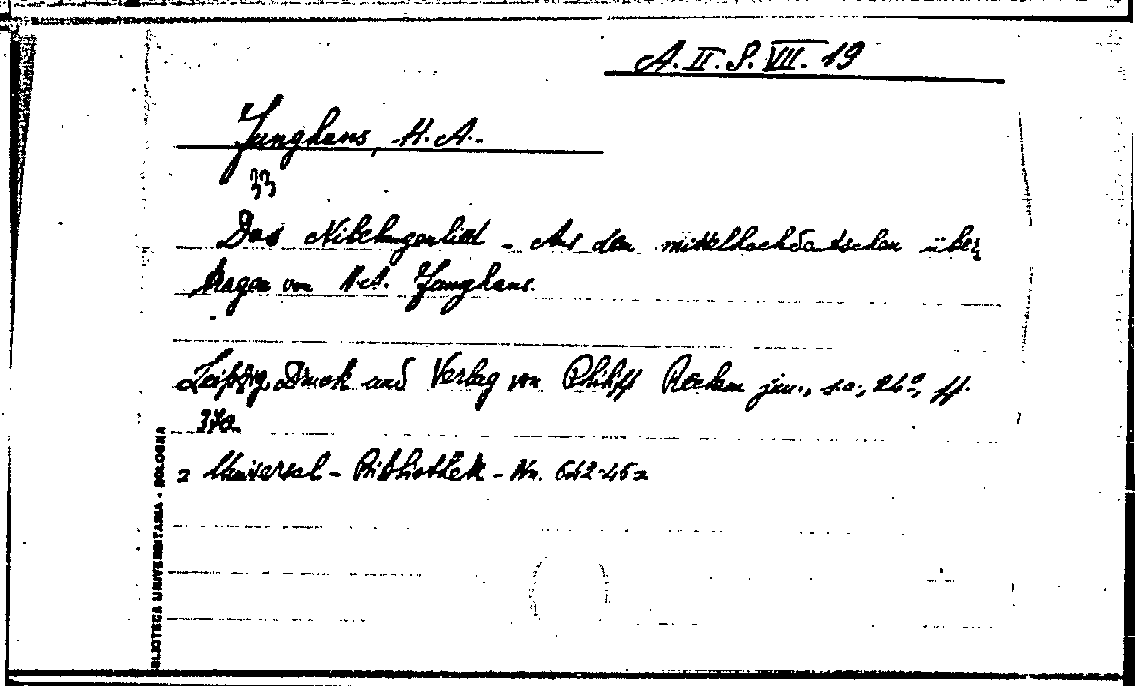 A. II. S. VII. 19
Junghans, H. A.
33
Das Nibelungenlied - Aus dem mittelhochdeutschen über
tragen von H. A. Junghans.
Leipzig, Druck und Verlag von Philipp Reclam jun., s.a., 16°, pp.
370.
= Universal - Bibliothek - Nr. 642-45 =
BLIOTECA UNIVERSITARIA - BOLOGNA